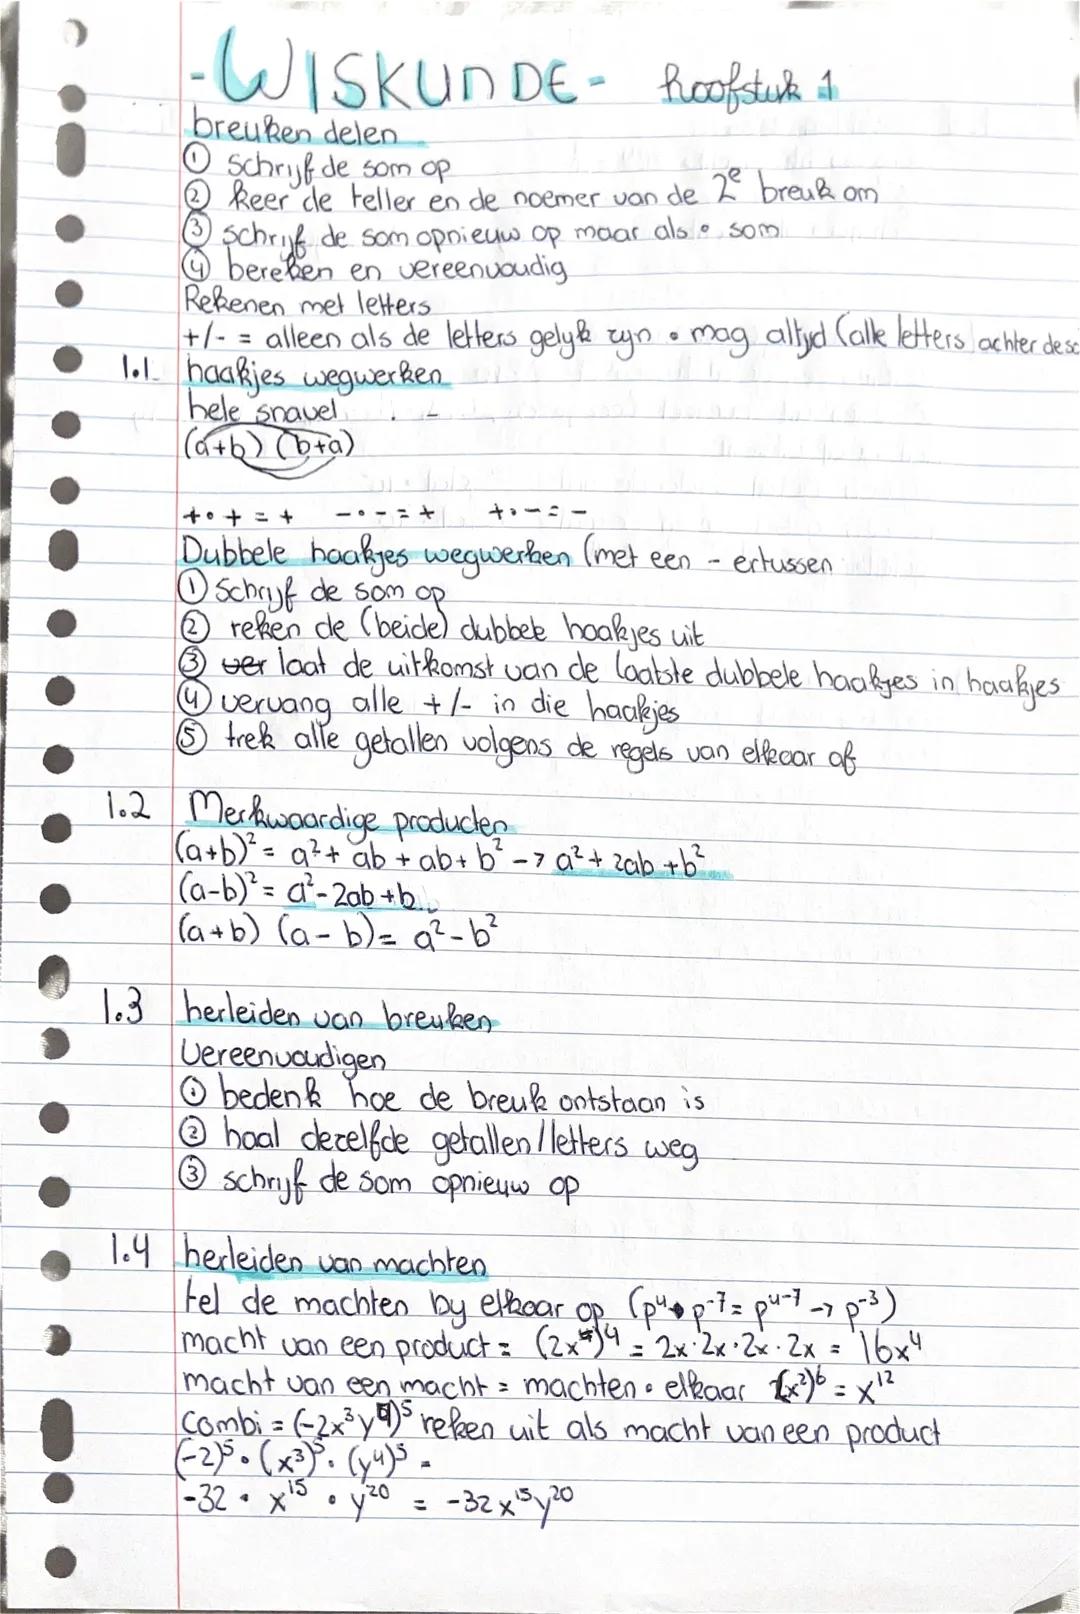 -WISKUNDE- hoofstuk 1
breuken delen
① schrijf de som op
② keer de teller en de noemer van de 2e breuk om
③ schrijf de som opnieuw op maar als • som
④ bereken en vereenvoudig
Rekenen met letters
+/- = alleen als de letters gelijk zijn • mag altijd (alle letters achter de
1.1 haakjes wegwerken
hele snavel
(a+b) (b+a)
+•+=+ -•-=+ +•-=-
Dubbele haakjes wegwerken (met een - ertussen
① Schrijf de som op
② reken de (beide) dubbele haakjes uit
③ laat de uitkomst van de laatste dubbele haakjes in haakjes
④ vervang alle +/- in die haakjes
⑤ trek alle getallen volgens de regels van elkaar af
1.2 Merkwaardige producten
(a+b)² = a² + ab + ab + b² -> a² + 2ab + b²
(a-b)² = a² - 2ab + b
(a+b) (a-b) = a² - b²
1.3 herleiden van breuken
Vereenvoudigen
① bedenk hoe de breuk ontstaan is
② haal dezelfde getallen/letters weg
③ schrijf de som opnieuw op
1.4 herleiden van machten
tel de machten bij elkaar op (p⁴•p⁻⁷ = p⁴⁻⁷ -> p⁻³)
macht van een product = (2x)⁴ = 2x·2x·2x·2x = 16x⁴
macht van een macht = machten • elkaar (x²)⁶ = x¹²
Combi = (-2x³y⁴)⁵ reken uit als macht van een product
(-2)⁵ • (x³)⁵ • (y⁴)⁵ =
-32 • x¹⁵ • y²⁰ = -32x¹⁵y²⁰